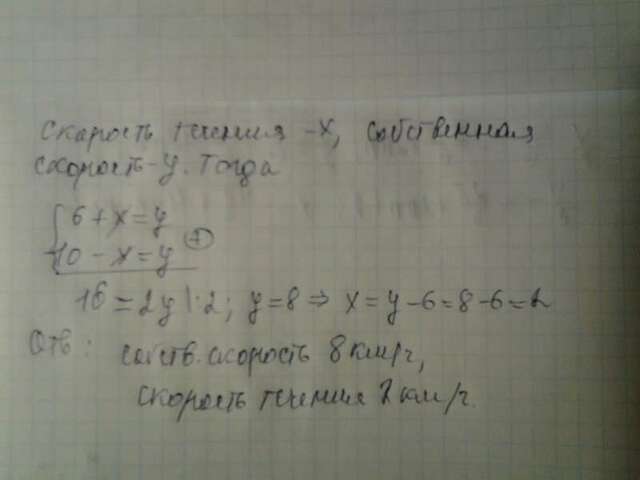 Скорость течения - x, собственная
скорость - y. Тогда
{6 + x = y
10 - x = y (+)
16 = 2y |:2; y = 8 ⇒ x = y - 6 = 8 - 6 = 2
Отв: собств. скорость 8 км/ч,
скорость течения 2 км/ч.